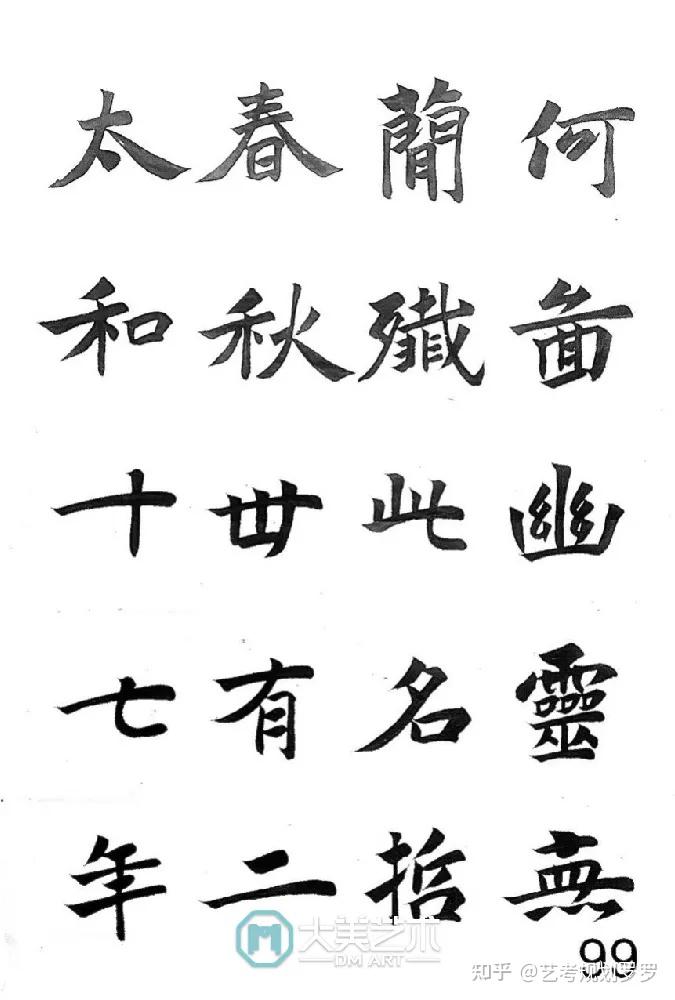 何啚幽靈無
蕳殲此名哲
春秋丗有二
太和十七年
大美艺术
DM ART
99
知乎 @艺考规划罗罗